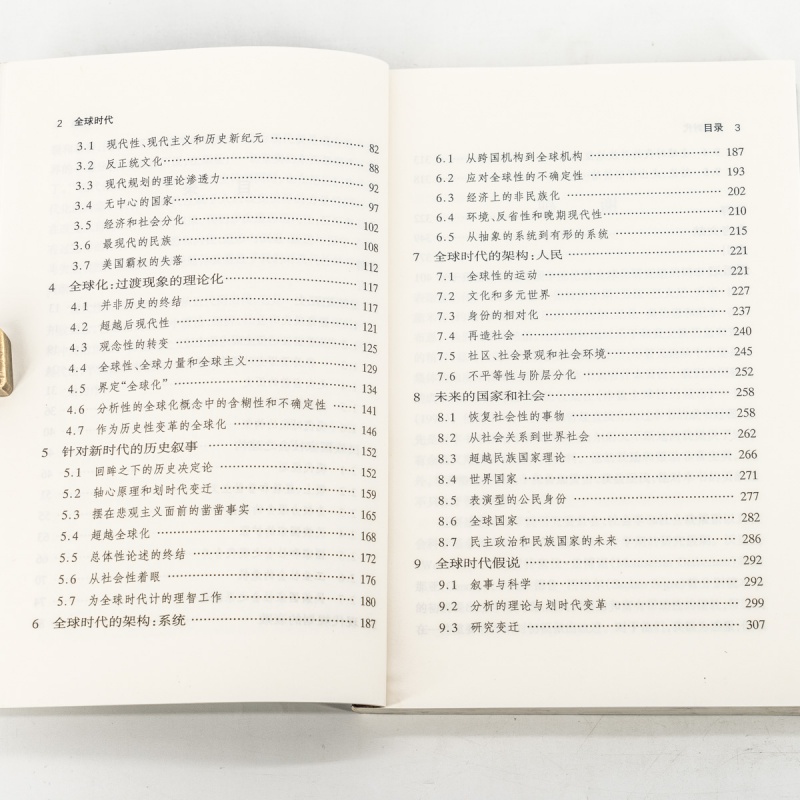 2 全球时代
3.1 现代性、现代主义和历史新纪元 82
3.2 反正统文化 88
3.3 现代规划的理论渗透力 92
3.4 无中心的国家 97
3.5 经济和社会分化 102
3.6 最现代的民族 108
3.7 美国霸权的失落 112
4 全球化:过渡现象的理论化 117
4.1 并非历史的终结 117
4.2 超越后现代性 121
4.3 观念性的转变 125
4.4 全球性、全球力量和全球主义 129
4.5 界定“全球化” 134
4.6 分析性的全球化概念中的含糊性和不确定性 141
4.7 作为历史性变革的全球化 146
5 针对新时代的历史叙事 152
5.1 回眸之下的历史决定论 152
5.2 轴心原理和划时代变迁 159
5.3 摆在悲观主义面前的凿凿事实 165
5.4 超越全球化 168
5.5 总体性论述的终结 172
5.6 从社会性着眼 176
5.7 为全球时代计的理智工作 180
6 全球时代的架构:系统 187
目录 3
6.1 从跨国机构到全球机构 187
6.2 应对全球性的不确定性 193
6.3 经济上的非民族化 202
6.4 环境、反省性和晚期现代性 210
6.5 从抽象的系统到有形的系统 215
7 全球时代的架构:人民 221
7.1 全球性的运动 221
7.2 文化和多元世界 227
7.3 身份的相对化 237
7.4 再造社会 240
7.5 社区、社会景观和社会环境 245
7.6 不平等性与阶层分化 252
8 未来的国家和社会 258
8.1 恢复社会性的事物 258
8.2 从社会关系到世界社会 262
8.3 超越民族国家理论 266
8.4 世界国家 271
8.5 表演型的公民身份 277
8.6 全球国家 282
8.7 民主政治和民族国家的未来 286
9 全球时代假说 292
9.1 叙事与科学 292
9.2 分析的理论与划时代变革 299
9.3 研究变迁 307